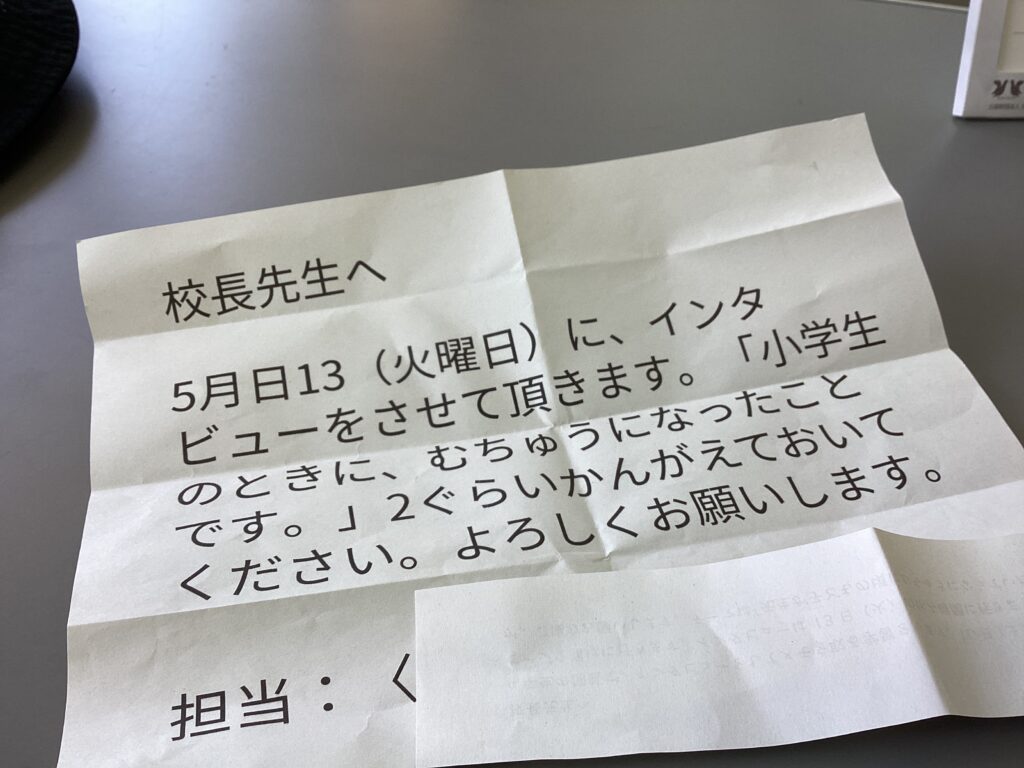 校長先生へ
5月日13（火曜日）に、インタ
ビューをさせて頂きます。「小学生
のときに、むちゅうになったこと
です。」2ぐらいかんがえておいて
ください。よろしくお願いします。
担当：く